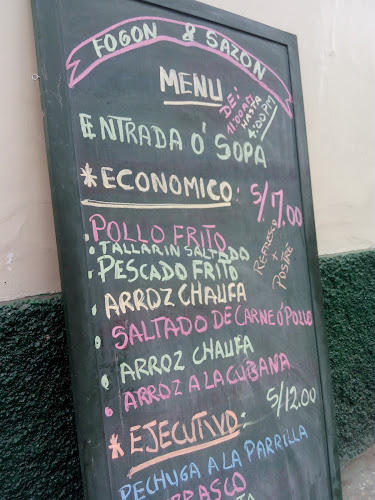 FOGON & SAZON
MENU
DE:
11:00 AM
HASTA
4:00 PM
ENTRADA Ó SOPA
*ECONOMICO:
S/7.00
REFRESCO
+
POSTRE
POLLO FRITO
• TALLARIN SALTADO
• PESCADO FRITO
• ARROZ CHAUFA
• SALTADO DE CARNE Ó POLLO
• ARROZ CHAUFA
• ARROZ A LA CUBANA
*EJECUTIVO:
S/12.00
PECHUGA A LA PARRILLA